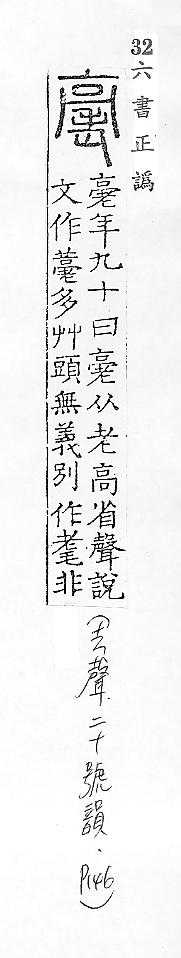 32 六書正譌
年九十曰从老高省聲說
文作多艸頭無義別作耄非
(去聲二十號韻.P146)